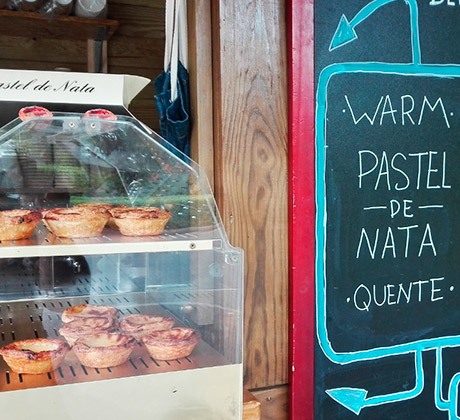 Pastel de Nata
·WARM·
PASTEL
— DE —
NATA
·QUENTE·